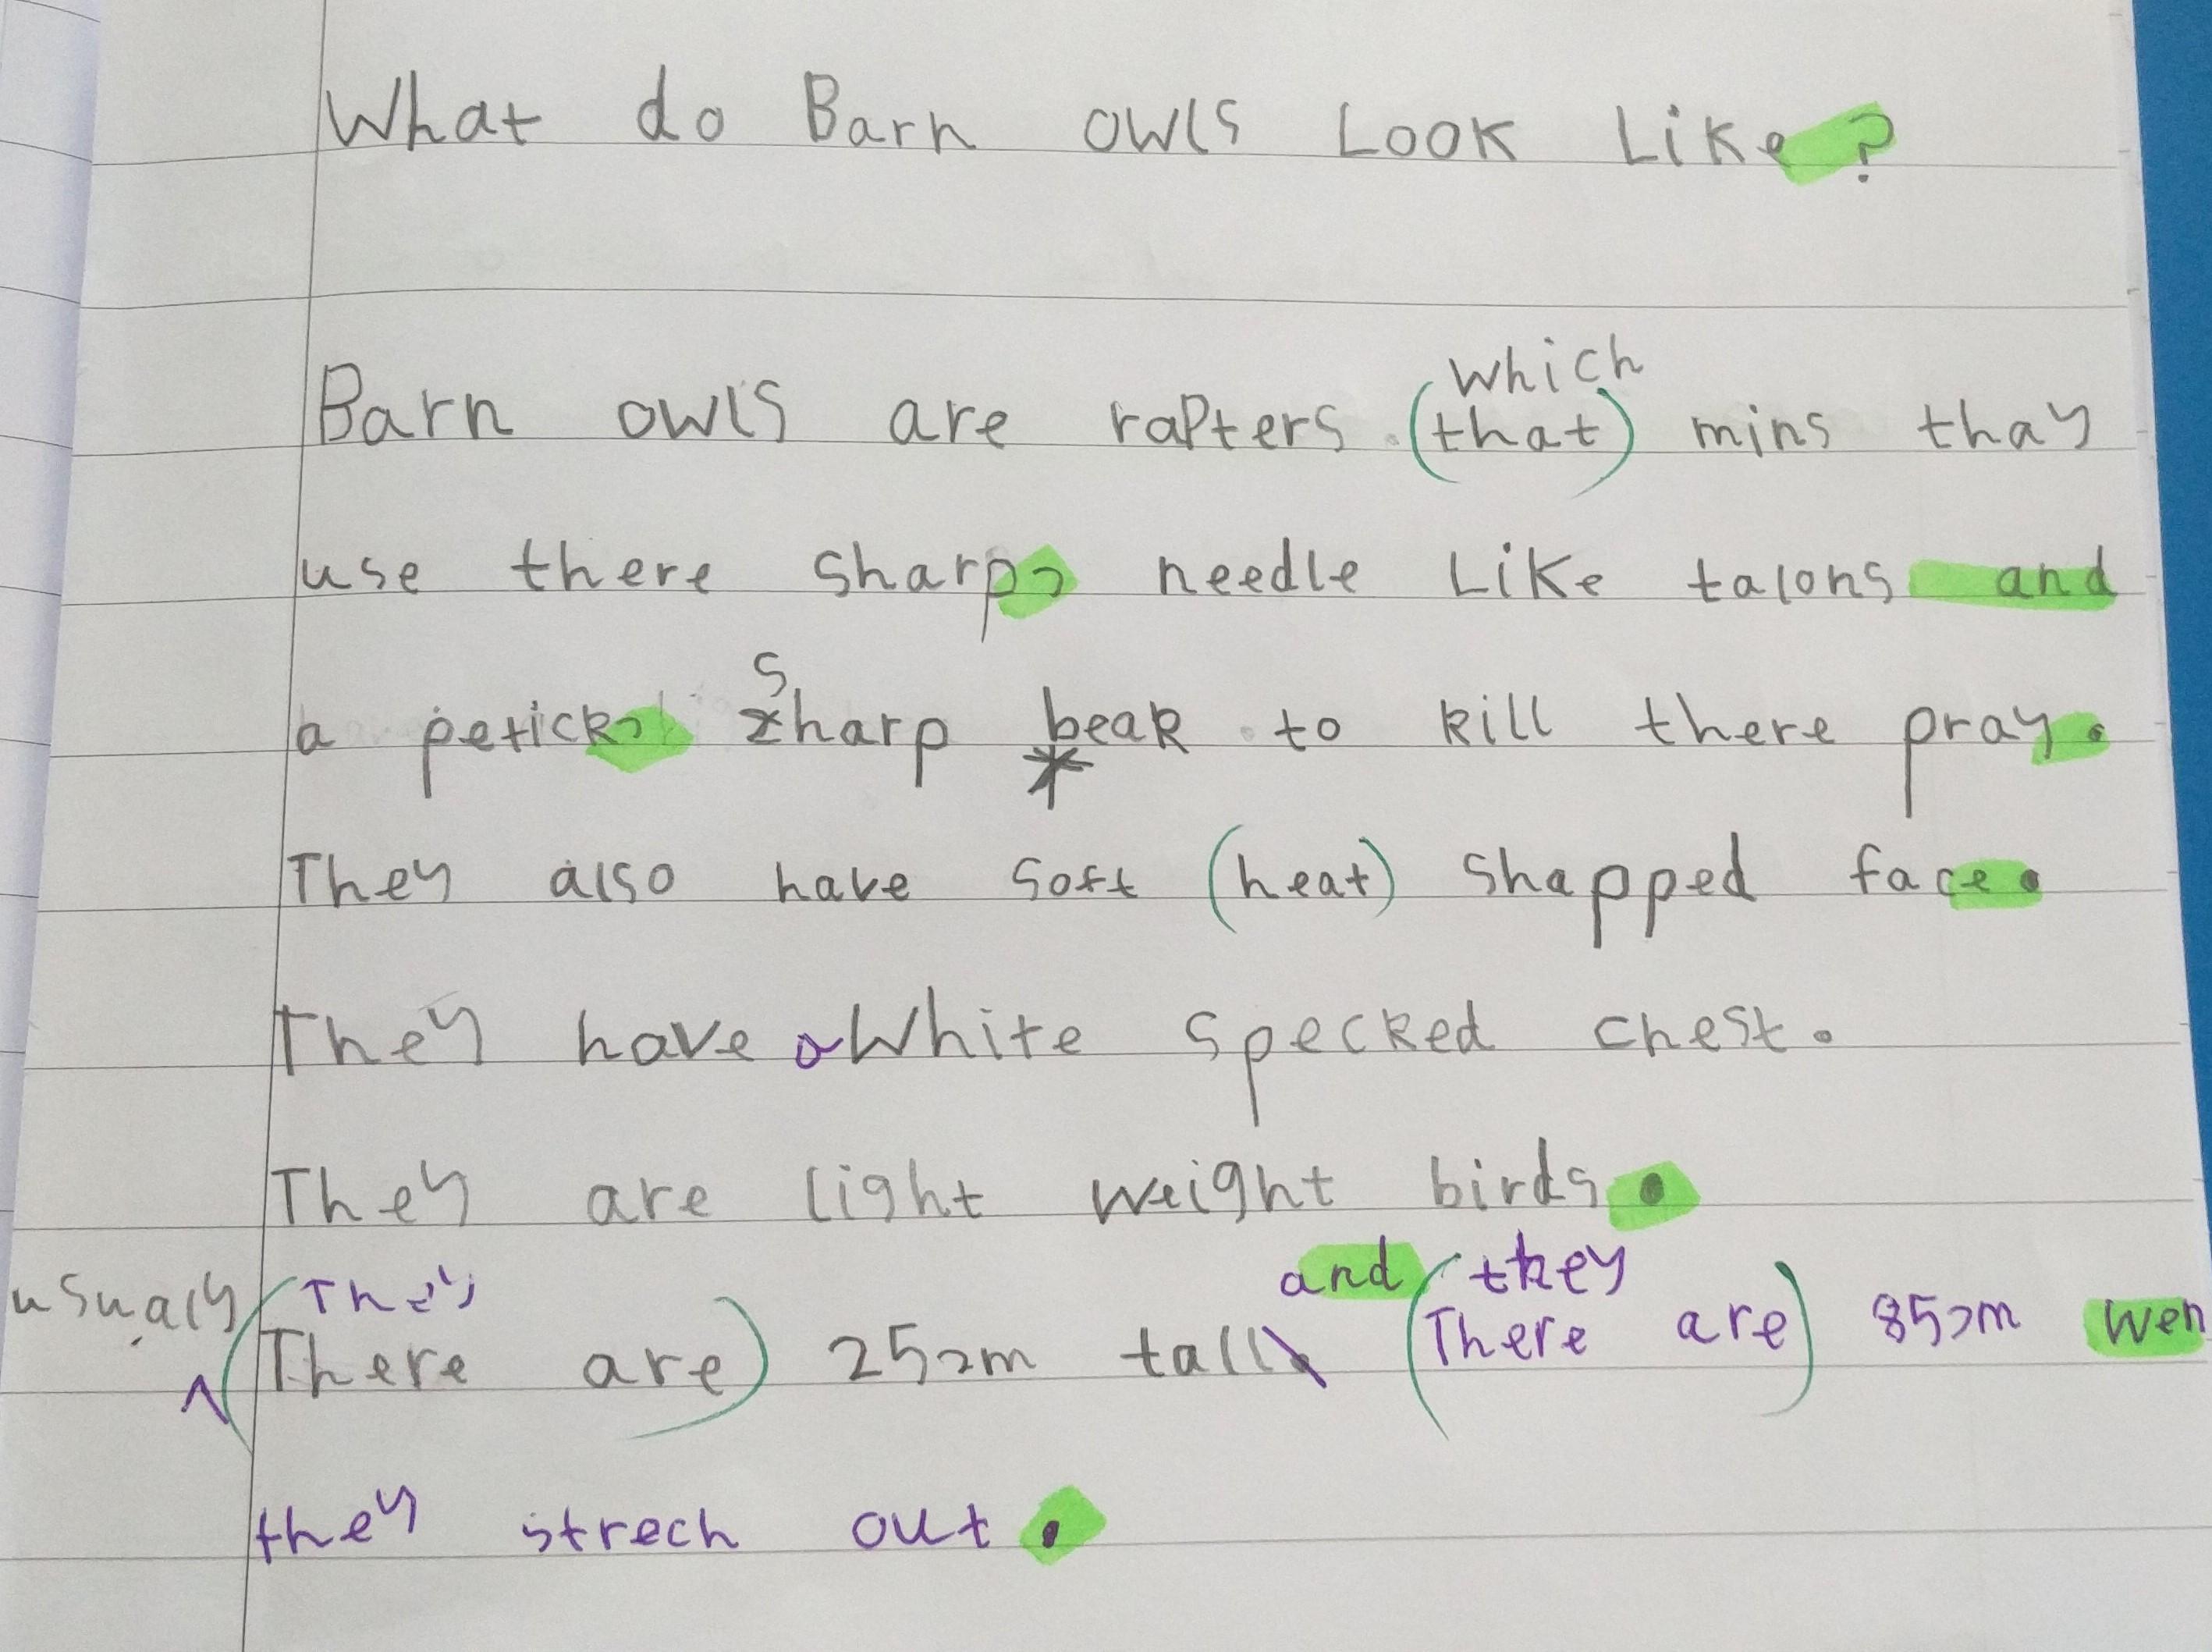 What do Barn owls Look Like?
which
Barn owls are rapters (that) mins thay
use there sharp, needle Like talons and
S
a perick, sharp beak to kill there pray.
*
They also have soft (heat) shapped face.
They have a White specked chest.
They are light weight birds.
usualy They and they
(There are) 25cm tall (There are) 85cm wen
they strech out.